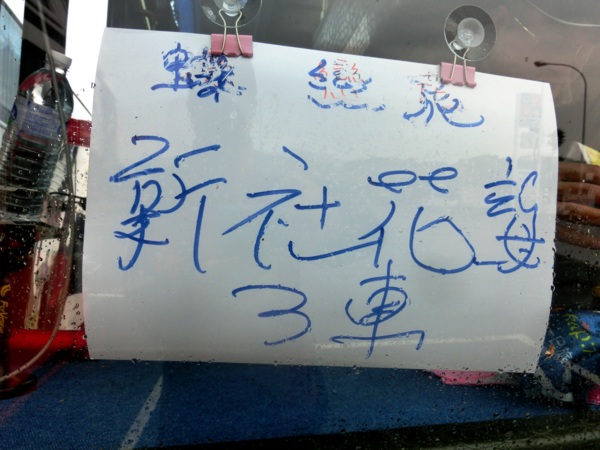 蝶戀花
新社花海
3車